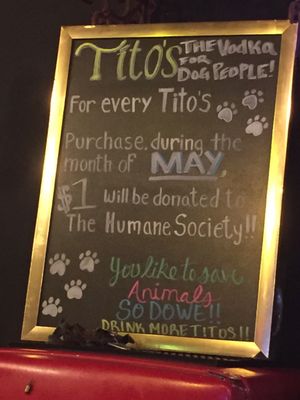 Tito's THE Vodka
FOR
DOG PEOPLE!
For every Tito's
Purchase, during the
month of MAY,
$1 will be donated to
The Humane Society!!
You like to save
Animals
SO DO WE!!
DRINK MORE TITOS!!